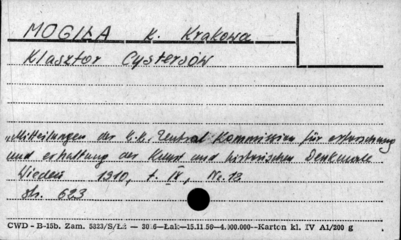 MOGIŁA k. Krakowa
Klasztor Cystersów
„Mitteilungen der k.k. Zentral Kommission für erforschung
und erhaltung der Kunst und historischen Denkmale
Wiedeń 1910, t. IX, Nr. 13
str. 623
CWD - B-15b. Zam. 5823/S/Łś — 30.6—Łak—15.11.50—4.000.000—Karton kl. IV A1/200 g